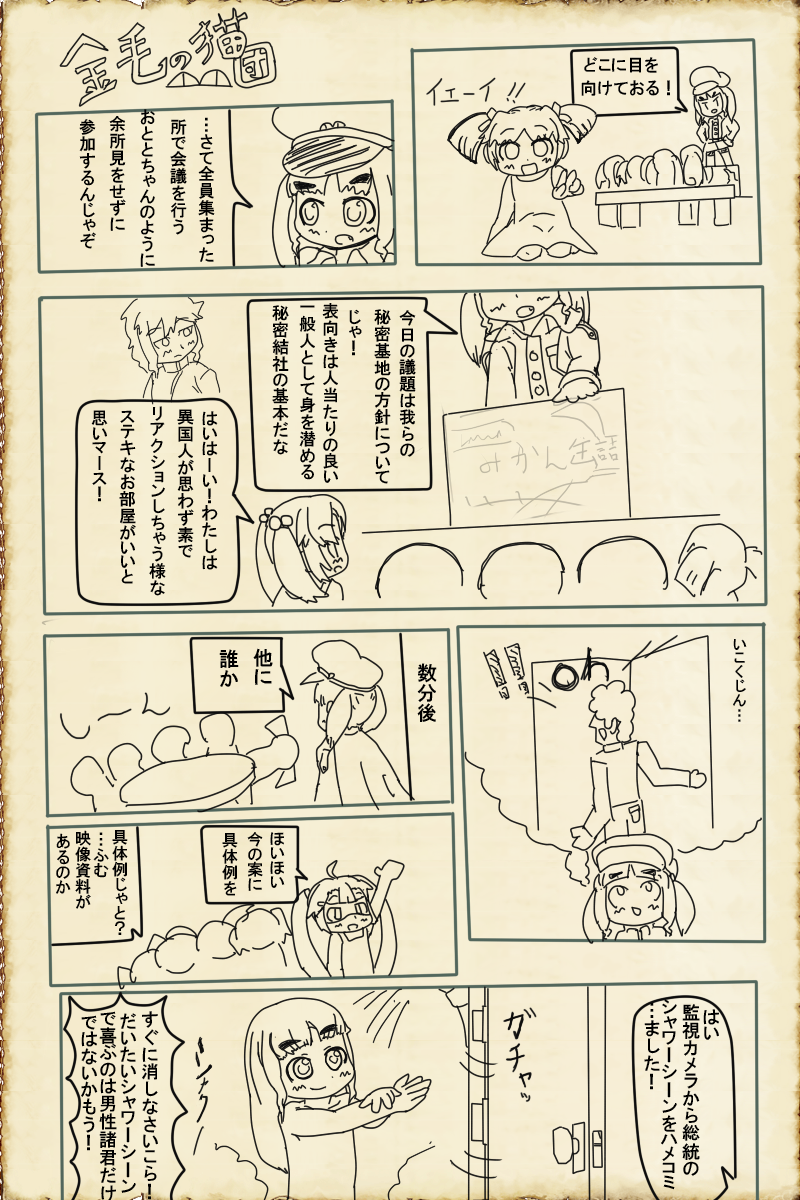 金毛の猫団
どこに目を
向けておる！
イエーイ!!
…さて全員集まった
所で会議を行う
おととちゃんのように
余所見をせずに
参加するんじゃぞ
今日の議題は我らの
秘密基地の方針について
じゃ！
表向きは人当たりの良い
一般人として身を潜める
秘密結社の基本だな
みかん缶詰
はいはーい！わたしは
異国人が思わず素で
リアクションしちゃう様な
ステキなお部屋がいいと
思いマース！
いこくじん…
oh
数分後
他に
誰か
しーん
ほいほい
今の案に
具体例を
具体例じゃと？
…ふむ
映像資料が
あるのか
はい
監視カメラから総統の
シャワーシーンをハメコミ
…ました！
ガチャッ
すぐに消しなさいこら！
だいたいシャワーシーン
で喜ぶのは男性諸君だけ
ではないかもう！